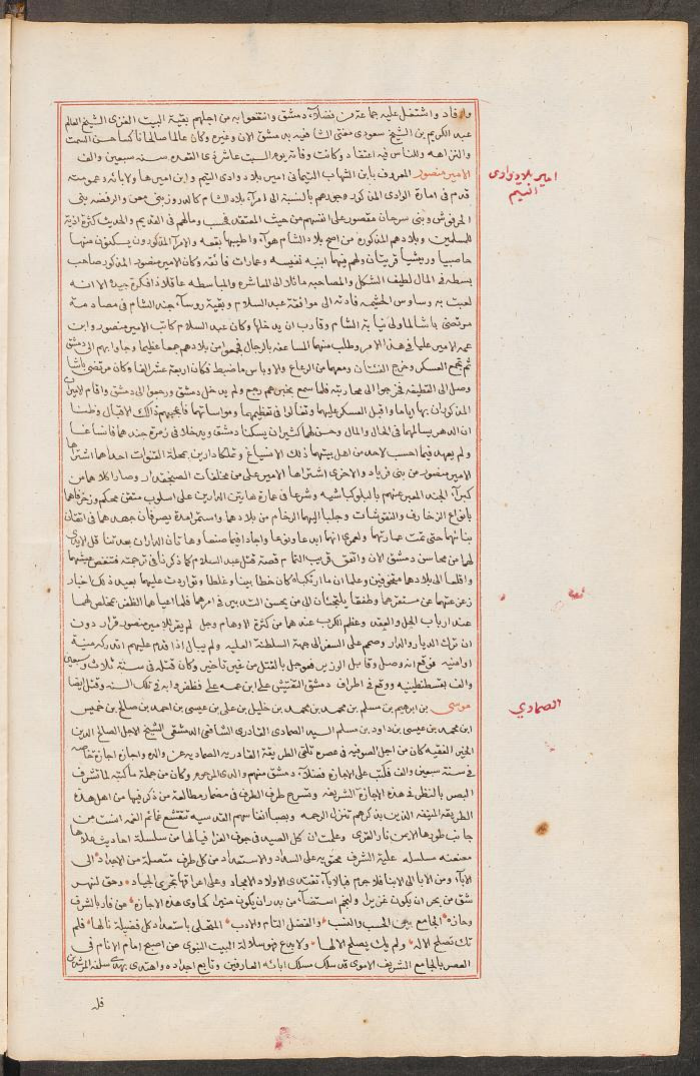 وأفاد واشتغل عليه جماعة من فضلاء دمشق وانتفعوا به من اجلهم بقية البيت الغزى الشيخ العالم
عبد الكريم بن الشيخ سعودى مفتى الشافعيه بدمشق الان وغيره وكان عالما صالحا ناسكا حسن السمت
والنزاهه وللناس فيه اعتقاد وكانت وفاته يوم السبت عاشر ذى القعده سنه سبعين والف
الامير منصور المعروف بابن الشهاب التيمانى امير بلاد وادى التيم وابن اميرها ولابائه وعمومته
امير بلاد وادى التيم
قدم فى امارة الوادى المذكور وجودهم بالنسبة الى امرآء بلاد الشام كالدروز بنى معن والرفضه بنى
الحرفوش وبنى سرحان مقصور على انفسهم من حيث المعتقد فحسب ومالهم فى القديم والحديث كثرة اذية
للمسلمين وبلادهم المذكوره من اصح بلاد الشام هوآء واطيبها بقعه والامرآء المذكورون يسكنون منها
حاصبيا وريشيا قريتان ولهم فيها ابنيه نفيسه وعمارات فائقه وكان الامير منصور المذكور صاحب
بسطه فى المال لطيف الشكل والمصاحبه مائلا الى المعاشره والمباسطه عاقلا ذا فكرة جيده الا انه
لعبت به وساوس الحشيمه فأدته الى موافقة عبد السلام وبقية روسآء جند الشام فى مصادمة
مرتضى باشا لما ولى نيابة الشام وقارب ان يدخلها وكان عبد السلام كاتب الامير منصور وابن
عمه الامير عليا فى هذا الامر وطلب منهما المساعفه بالرجال فجمعوا من بلادهم جمعا عظيما وجاوا بهم الى دمشق
ثم تجمع العسكر وخرج الفئتان ومعهما من الرعاع والاوباش ما ضبط فكان اربعة عشر الفا وكان مرتضى باشا
وصل الى القطيفه فخرجوا الى محاربته فلما سمع بخبرهم رجع ولم يدخل دمشق ورجعوا الى دمشق واقام الاميران
المذكوران بها اياما واقبل العسكر عليهما وتغالوا فى تعظيمهما ومواساتهما فاعجبهم ذالك الاقبال وظنا
ان الدهر يسالمهما فى الحال والمال وحسن لهما كثيران يسكنا دمشق ويدخلا فى زمرة جندها فانساغا
ولم يعهد فيما احسب لاحد من اهل بيتهما ذلك الانسياغ وتملكا دارين بمحلة القنوات احداهما اشتراها
الامير منصور من بنى فرياد والاخرى اشتراها الامير على من مخلفات الصنجقدار وصارا كلاهما من
كبرآء الجند المعبر عنهم بالبلوكباشيه وشرعا فى عمارة هاتين الدارين على اسلوب متقن محكم وزخرفاهما
بانواع الزخارف والنقوشات وجلبا اليهما الرخام من بلادهما واستمرا مدة يصرفان جهدهما فى اتقان
بنائهما حتى تمت عمارتهما ولعمرى انهما ابدعا ونوعا واجادا فيما صنعا وهاتان الداران بعد تناقل الايدى
لهما من محاسن دمشق الان واتفق قريب التمام قصة قتل عبد السلام كما ذكرنا فى ترجمته فتنغص عيشهما
واقلعا الى بلادهما متخوفين وعلما ان ما ارتكباه كان خطا بينا وغلطا وتواردت عليهما بعيد ذلك اخبار
زعزعتهما عن مستقرهما وطفقا يلتجئان الى من يحسن التدبير فى امرهما فلما اعياهما الظفر بمخلص لهما
عند ارباب الحل والعقد وعظم الكرب عندهما من كثرة الاوهام وجل لم يقر للامير منصور قرار دون
ان ترك الديار والدار وصمم على السفر الى جهة السلطنة العليه ولم يبال اذا قدم عليهم ادركه منية
او امنية فوقع انه وصل وقابل الوزير فعوجل بالقتل من غير تاخير وكان قتله فى سنة ثلاث وسبعين
والف بقسطنطينيه ووقع فى اطراف دمشق التفتيش على ابن عمه على فظفروا به فى تلك السنه وقتل ايضا
موسى بن ابرهيم بن مسلم بن محمد بن محمد بن خليل بن على بن عيسى بن احمد بن صالح بن خميس
الصمادي
ابن محمد بن عيسى بن داود بن مسلم السيد الصمادى القادرى الشافعى الدمشقى الشيخ الاجل الصالح الدين
الخير الفقيه كان من اجل الصوفيه فى عصره تلقى الطريقة القادريه الصماديه عن والده واجازه اجازة تفاصه
فى سنة سبعين والف فكتب على الاجازة فضلاء دمشق منهم والدى المرحوم وكان من جملة ما كتبه لما تشرف
البصر بالنظر فى هذه الاجازة الشريفه وتسرح طرف الطرف فى مضمار مطالعة من ذكر فيها من اهل هذه
الطريقه المنيفه الذين بذكرهم تنزل الرحمه وبصبا انفاسهم القدسيه تنقشع غمائم الغمه امنت من
جانب طورها الايمن نار القرى وعلمت ان كل الصيد فى جوف الفرا فيالها من سلسلة احاديث علاها
معنعنه سلسله علية الشرف محتويه على السداد والاستعداد من كل طرف متصلة من الاجداد الى
الآبآء ومن الابا الى الابنا فلا جرم فبالابآء تقتدى الاولاد الامجاد وعلى اعراقها تجرى الجياد وحق لنهر
شق من بحر ان يكون غزيرا ولنجم استضآء من بدر ان يكون منيرا كحاوى هذه الاجازه من فاز بالشرف
وحازه الجامع بين الحسب والنسب والفضل التام والادب المتحلى باستعداد كل فضيلة نالها فلم
تك تصلح الا له ولم يك يصلح الا لها ولا بدع فهو سلالة البيت النبوى من اصبح امام الانام فى
العصر بالجامع الشريف الاموى قد سلك مسلك ابائه العارفين وتابع اجداده واهتدى بهدى سلفه المرشدين
فله